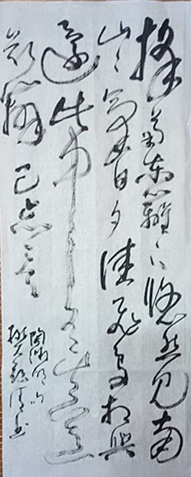 採菊東籬下悠然見南
山〻氣日夕佳飛鳥相與
還此中有真意
欲辨已忘言
陶淵明